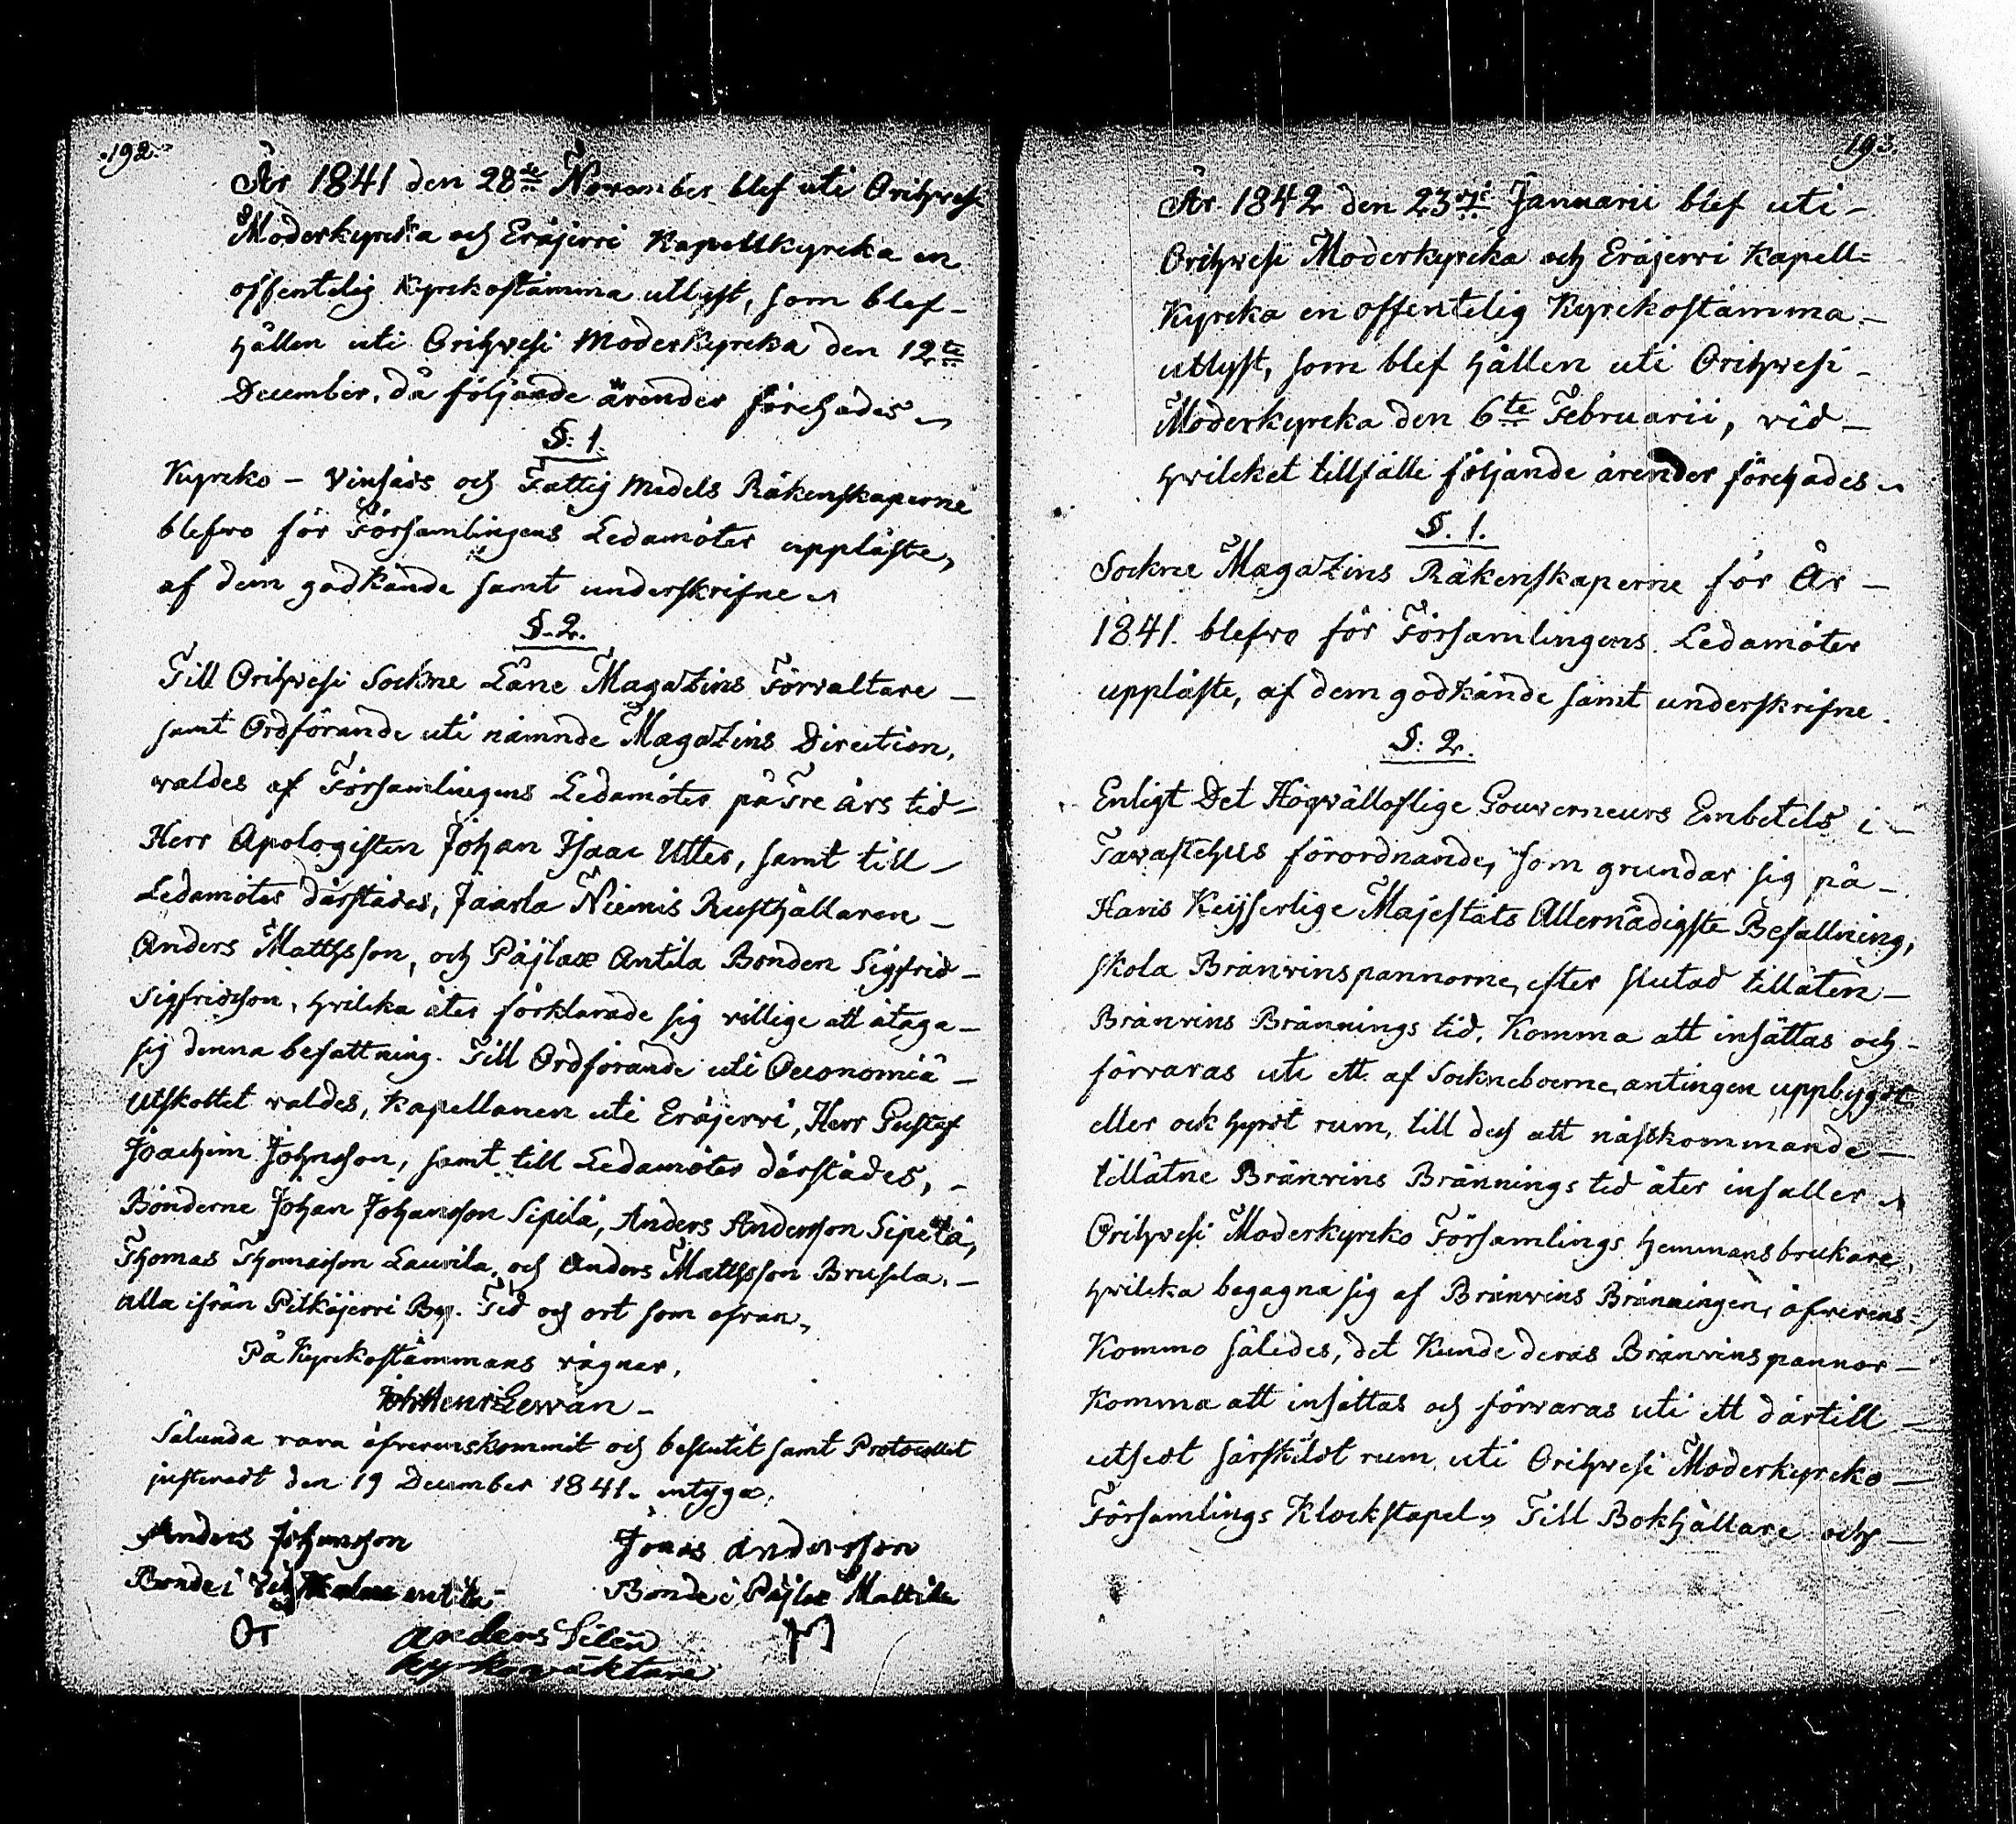 192.
År 1841 den 28de November blef uti Orihvesi
Moderkyrcka och Eräjervi Kapellkyrcka en
offentelig Kyrckostämma utlyst, som blef-
hållen uti Orihvesi Moderkyrcka den 12te
December, då följande ärender förehades
§: 1.
Kyrcko- Vinsäds och Fattig Medels Räkenskaperne
blefvo för Församlingens Ledamöter uppläste,
af dem godkände samt underskrifne
§. 2.
Till Orihvesi Sockne Låne Magazins Förvaltare -
samt Ordförande uti nämnde Magazins Direction,
valdes af Församlingens Ledamöter på Tre års tid-
Herr Apologisten Johan Isaac Utter, samt till -
Ledamöter därstädes, Jaarla Niemis Rusthållaren -
Anders Mattsson, och Päjlax Antila Bonden Sigfrid -
Sigfridsson, hvilcka åter förklarade sig villige att åtaga -
sig denna befattning. Till Ordförande uti Oeconomiä -
Utskottet valdes, Kapellanen uti Eräjervi, Herr Gustaf
Joachim Johnsson, samt till Ledamöter därstädes, -
Bönderne Johan Johansson Sipilä, Anders Andersson Sipilä,
Thomas Thomasson Lauvila, och Anders Mattsson Brusila, -
alla ifrån Pitkäjervi By. Tid och ort som ofvan,
På Kyrckostämmans vägnar,
Joh Henr Lewan -
Sålunda vara öfverenskommit och beslutit samt Protocollet
justeradt den 19 December 1841. intyga,
Anders Johansson Jonas Andersson
Bonde i Bonde i Päjlax Mattila
Anders Silen
kyrkoväktare
193.
År 1842 den 23dje Januarii blef uti -
Orihvesi Moderkyrcka och Eräjervi Kapell=
Kyrcka en offentelig Kyrckostämma -
utlyst, som blef hållen uti Orihvesi -
Moderkyrcka den 6te Februarii, vid -
hvilcket tillfälle följande ärender förehades
§. 1.
Sockne Magazins Räkenskaperne för År -
1841. blefvo för Församlingens Ledamöter
uppläste, af dem godkände samt underskrifne.
§: 2.
Enligt Det Högvälloflige Gouverneurs Embetets i -
Tavastehus förordnande, som grundar sig på -
Hans Keijserlige Majestäts Allernådigste Befallning,
skola Bränvinspannorne, efter slutad tillåten -
Bränvins Brännings tid, Komma att insättas och -
förvaras uti ett af Sockneboerne antingen uppbygdt
eller ock hyrdt rum, till dess att nästkommande -
tillåtne Bränvins Brännings tid åter infaller
Orihvesi Moderkyrcko Församlings hemmansbrukare,
hvilcka begagna sig af Bränvins Bränningen, öfverens=
Kommo således, det Kunde deras Bränvinspannor -
Komma att insättas och förvaras uti ett därtill -
utsedt särskildt rum, uti Orihvesi Moderkyrcko -
Församlings Klockstapel, Till Bokhållare och -